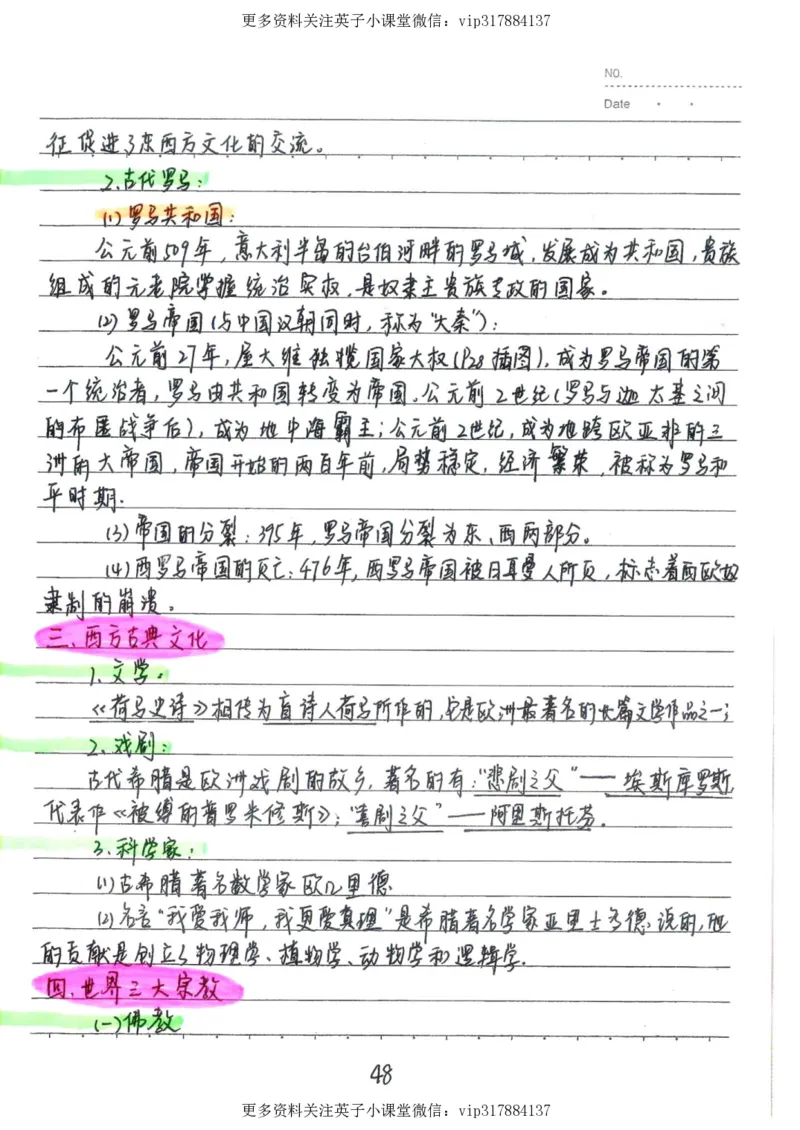 更多资料关注英子小课堂微信：vip317884137
NO.
Date
征促进了东西方文化的交流。
2.古代罗马：
(1)罗马共和国：
公元前509年，意大利半岛的台伯河畔的罗马城，发展成为共和国，贵族
组成的元老院掌握统治实权，是奴隶主贵族专政的国家。
(2)罗马帝国(与中国汉朝同时，称为"大秦")：
公元前27年，屋大维独揽国家大权(P28插图)，成为罗马帝国的第
一个统治者，罗马由共和国转变为帝国，公元前2世纪(罗马与迦太基之间
的布匿战争后)，成为地中海霸主；公元前2世纪，成为地跨欧亚非的三
洲的大帝国，帝国开始的两百年前，局势稳定，经济繁荣，被称为罗马和
平时期.
(3)帝国的分裂：395年，罗马帝国分裂为东、西两部分。
(4)西罗马帝国的灭亡：476年，西罗马帝国被日耳曼人所灭，标志着西欧奴
隶制的崩溃。
三、西方古典文化
1.文学。
《荷马史诗》相传为盲诗人荷马所作的，它是欧洲最著名的长篇文学作品之一；
2.戏剧：
古代希腊是欧洲戏剧的故乡，著名的有："悲剧之父"——埃斯库罗斯，
代表作《被缚的普罗米修斯》；"喜剧之父"——阿里斯托芬.
3.科学家：
(1)古希腊著名数学家欧几里德
(2)名言"我爱我师，我更爱真理"是希腊著名学家亚里士多德说的，他
的贡献是创立了物理学、植物学、动物学和逻辑学.
四、世界三大宗教
(一)佛教
48
更多资料关注英子小课堂微信：vip317884137